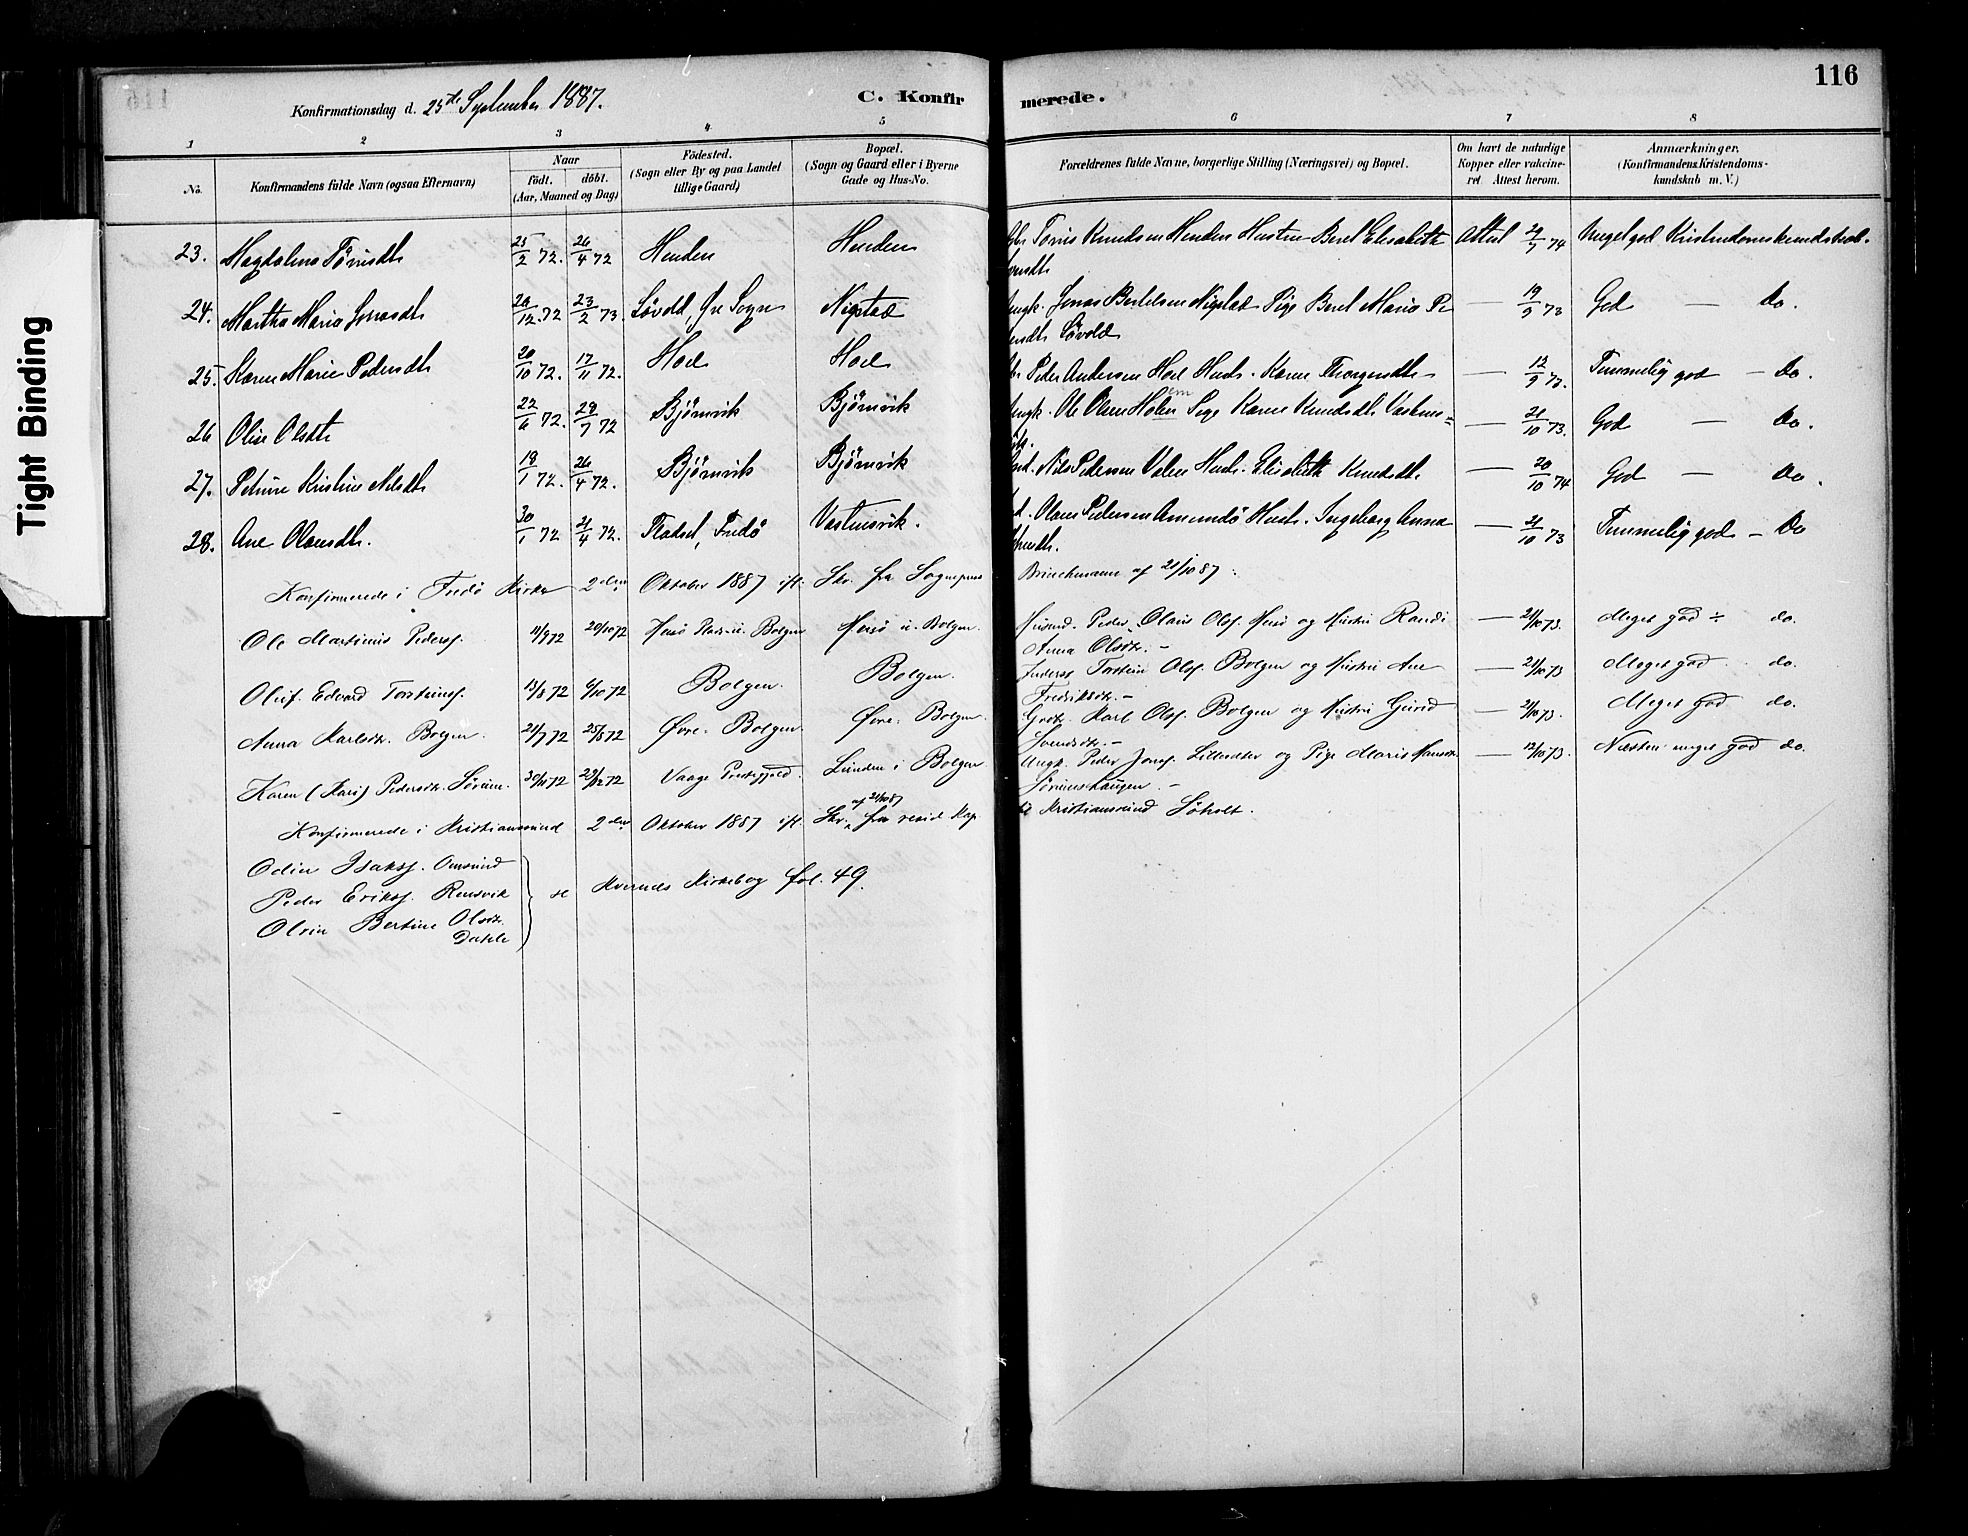 116
Konfirmationsdag d. 25de September 1887.
C. Konfirmerede.
1 2 3 4 5 6 7 8
No.
Konfirmandens fulde Navn (ogsaa Efternavn)
Naar
födt. döbt.
(Aar, Maaned og Dag)
Födested.
(Sogn eller By og paa Landet
tillige Gaard)
Bopæl.
(Sogn og Gaard eller i Byerne
Gade og Hus-No.
Forældrenes fulde Navne, borgerlige Stilling (Næringsvei) og Bopæl.
Om havt de naturlige
Kopper eller vakcine-
ret. Attest herom.
Anmærkninger.
(Konfirmandens Kristendoms-
kundskab m. V.)
23. Magdalena Tönisdtr 25/2 72. 26/4 72 Henden Henden Tönis Knudsen Henden Hustru Beret Elisabeth Attest 29/7 74 Meget god Kristendomskundskab.
24. Martha Maria Jonasdtr 28/12 72 23/2 73. Lövold, Öre Sogn Nigstad Jonas Bertelsen Nigstad Pige Beret Maria Pe
Lövold — 19/9 73 God — do.
25. Karen Marie Pedersdtr 20/10 72. 17/11 72. Hoel Hoel Peder Andersen Hoel Hustr. Karen — 12/9 73. Temmelig god — do.
26 Olise Olsdtr 22/6 72. 28/7 72 Björnvik Björnvik Ungk. Ole Olsen Holen Pige Karen Knudsdtr — 21/10 73. God — do.
27. Petrine Kristine Nilsdtr 18/1 72. 26/4 72. Björnvik Björnvik Nils Pedersen Valen Hustr. Elisabeth Knudsdtr. — 20/10 74 God — do.
28. Ane Olausdtr. 30/1 72 21/4 72. Pladset, Fredö Vastensvik. Olaus Pedersen Omsundö Hustr. Ingeborg Anna — 21/10 73 Temmelig god — do
Konfirmerede i Fredö Kirke 2den Oktober 1887 ifl. Skr. fra Sognepræs Brinchmann af 21/10 87.
Ole Martinus Peders. 11/9 72 20/10 72 Bolgen Bolgen. Husmd. Peder Olaus Ols. og Hustru Randi
Anna Olsdtr. — — 21/10 73. Meget god do.
Oluf Edvard Torsteins. 13/8 72 6/10 72 Bolgen. Bolgen. Inderst Torstein Ols. Bolgen og Hustru Ane
Fredriksdtr. — — 21/10 73 Meget god do.
Anna Karlsdtr. Bolgen. 21/7 72 25/8 72 Øvre Bolgen Øvre Bolgen. Gbr. Karl Ols. Bolgen og Hustru Gurid
Svendsdtr. — — 21/10 73. Meget god do.
Karen (Kari) Pedersdtr. Sörum. 30/11 72 29/12 72 Vaage Prestegjeld. Lunden i Bolgen Ungk. Peder Jons. og Pige Marit Hansdtr — 12/10 73. Næsten meget god do.
Konfirmerede i Kristianssund 2den Oktober 1887 ifl. Skr. af 21/10 87 fra resid. Kap. Kristianssund Söholt.
Odin Isaks. Omsund
Peder Eriks. Rensvik
Olvin Bertine Olsdtr.
Dahle
se Kvernes Kirkebog fol. 49.
Tight Binding